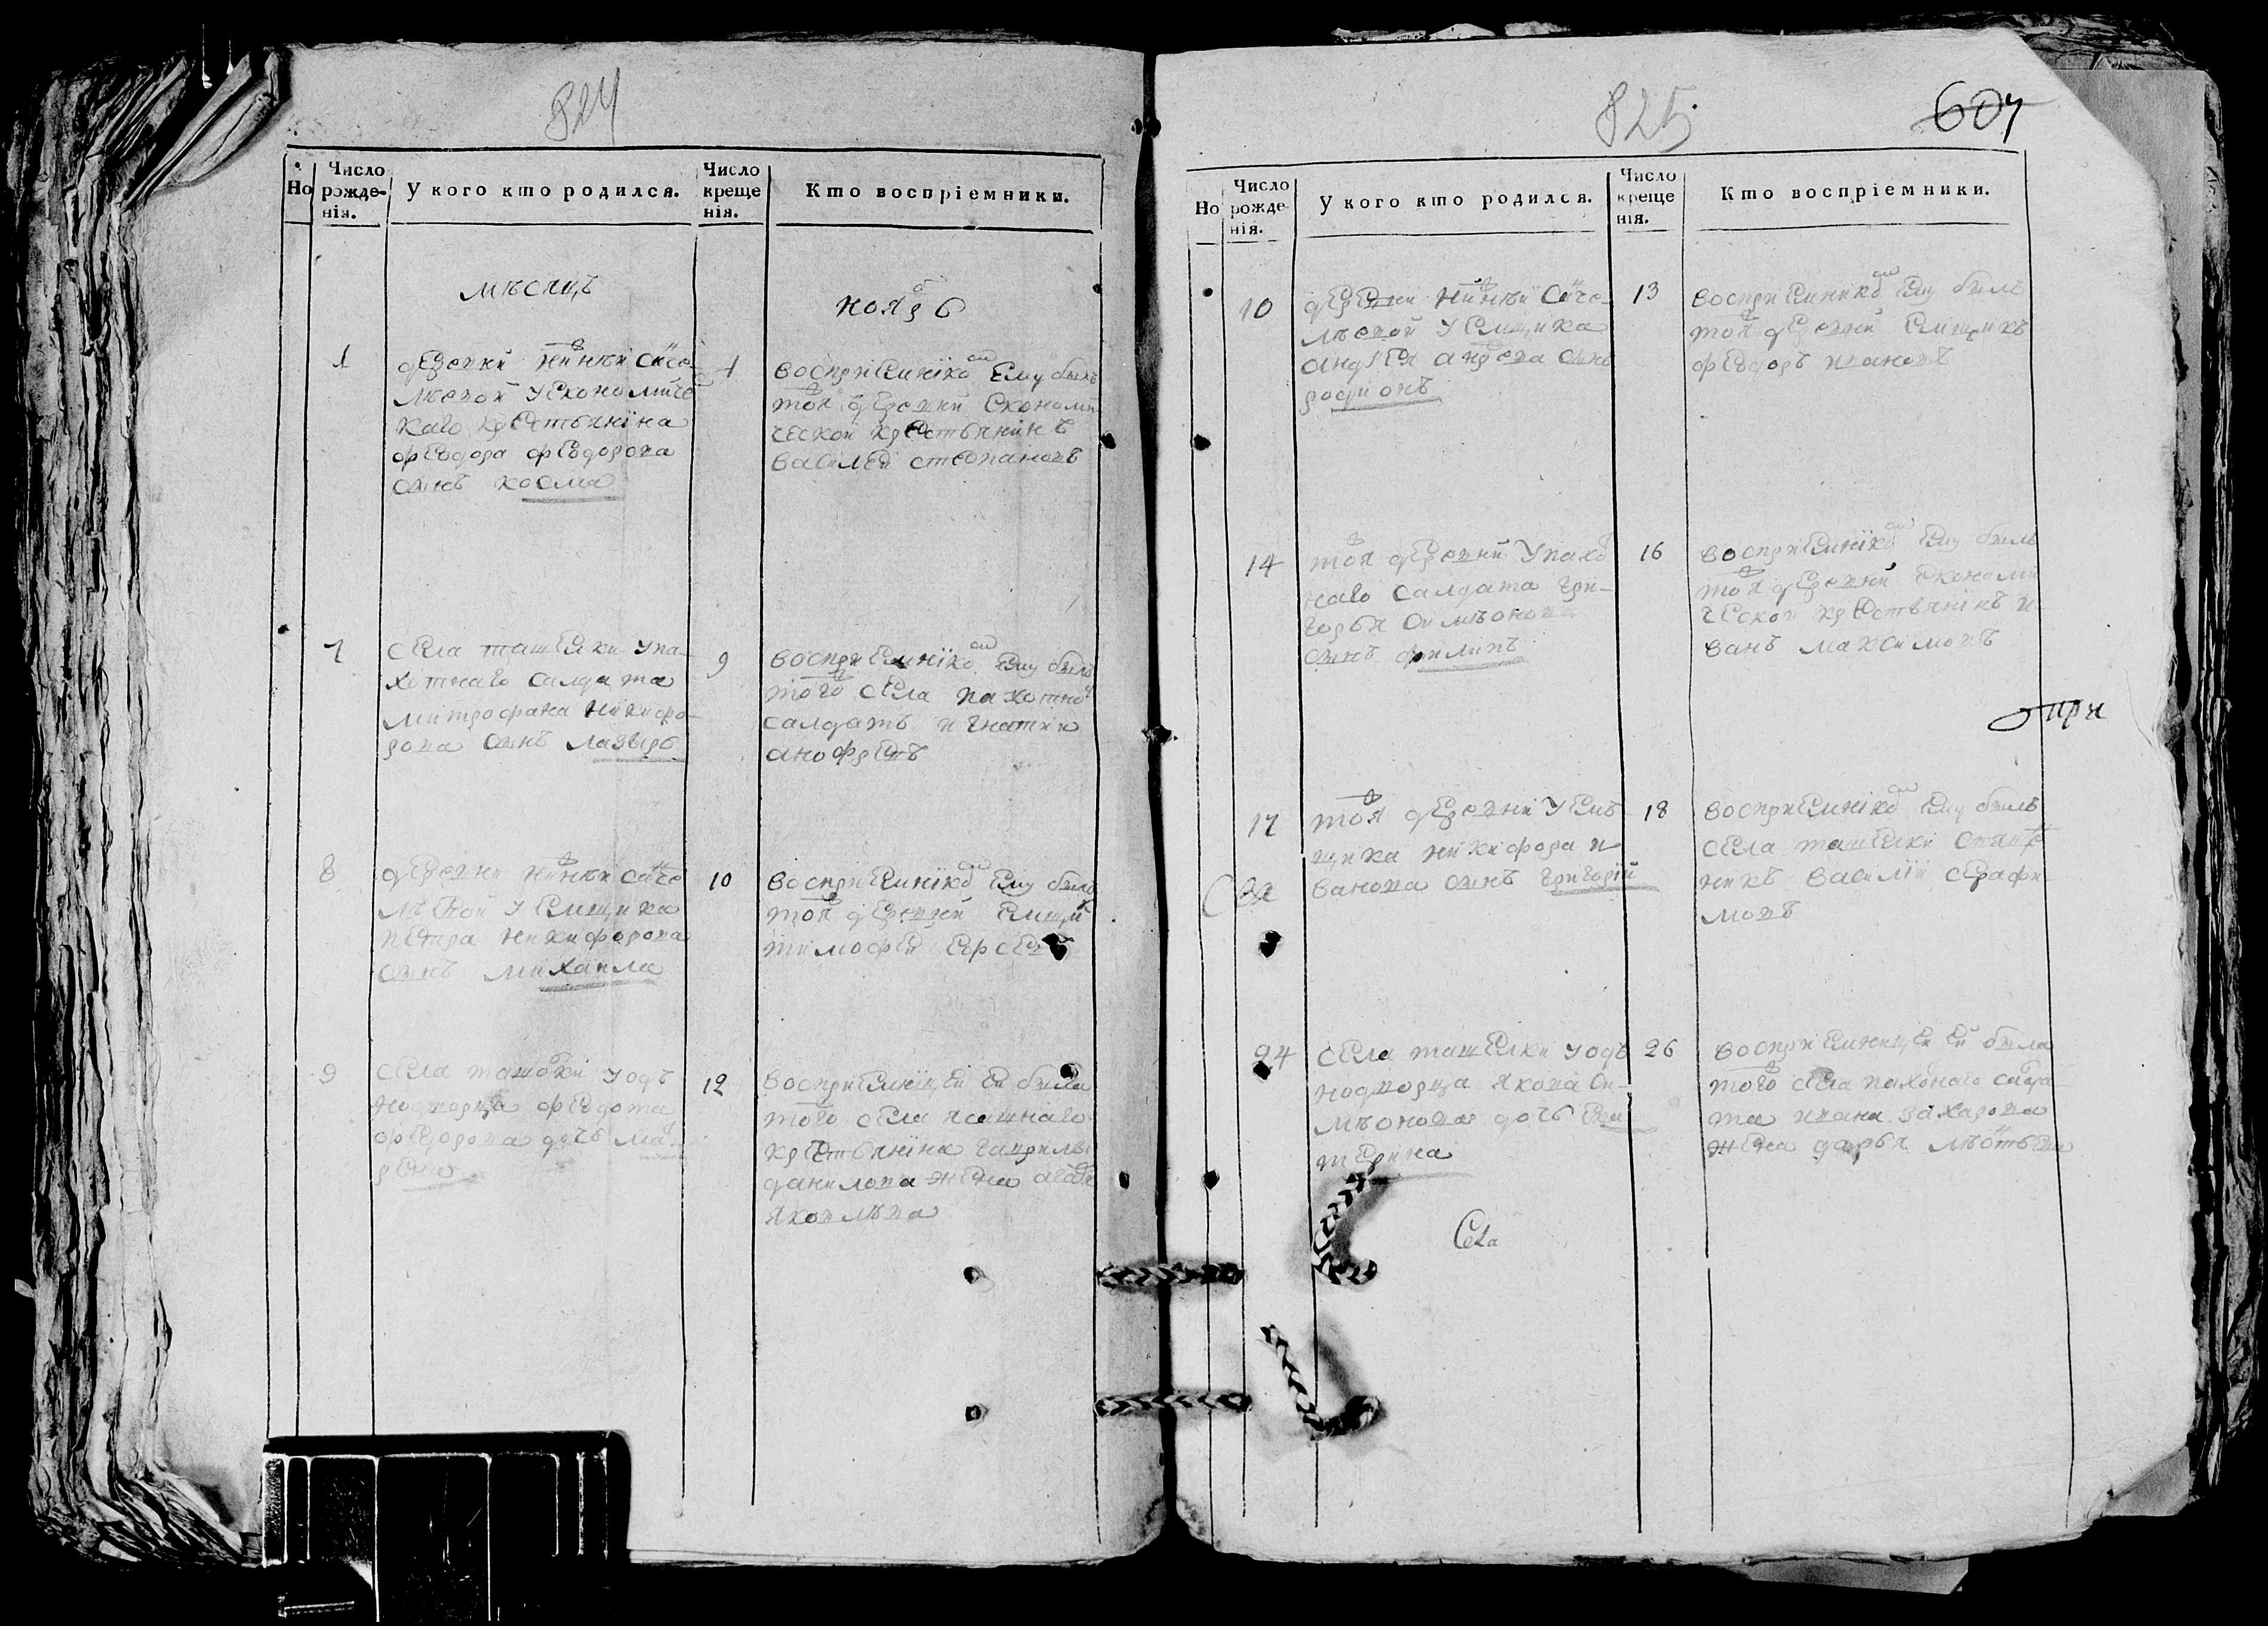 824
Но
Число рожде-нія.
У кого кто родился.
Число креще нія.
Кто воспріемники.
мѣсяцъ
ноябрь
1
деревни нижней санче
лѣевой у Економиче
каго крестьянина
феѡдора феѡдорова
сынъ косма
4
воспріемникомъ ему былъ
тояже деревни Економи
ческой крестьянинъ
василей степановъ
7
села ташелки у па
хотнаго салдата
митрофана никифо
рова сынъ лазырь
9
воспріемникомъ ему былъ
тогоже села пахотной
салдатъ игнатии
анофревъ
8
деревни нижней санче
лѣевой у емщика
петра никифорова
сынъ михаила
10
воспріемникомъ ему былъ
тояже деревни емщикъ
тимофеи
9
села ташолки у одъ
нодворца феѡдота
феѡдорова дочь ма
рена
12
воспріемницеи еи была
тогоже села ясашнаго
крестьянина гаврилы
данилова жена
яковлѣва
825
607
Но
Число рожде-нія.
У кого кто родился.
Число креще нія.
Кто воспріемники.
10
деревни нижней санче-
лѣевой у емщика
андрея андреева сынъ
родионъ
13
воспріемникомъ ему былъ
тояже деревни емщикъ
феѡдоръ ивановъ
14
тояже деревни у пахо
наго салдата гри-
горья симѣонова
сынъ филипъ
16
воспріемникомъ ему былъ
тояже деревни економи
ческой крестьянинъ и-
ванъ максимовъ
при
17
тояже деревни у емъ
щика никифора и
ванова сынъ григорий
18
воспріемникомъ ему былъ
села ташелки священ
никъ василій серафи
мовъ
24
села ташелки у одъ
нодворца якова си-
мѣонова дочь ека
терина
26
воспріемницеи еи была
тогоже села пахонаго салда
та ивана захарова
жена дарья
Села